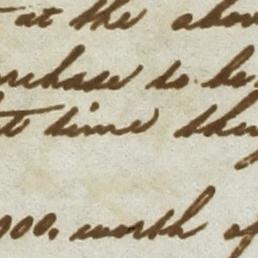 at the abov
rchase to be
t time they
000. worth of